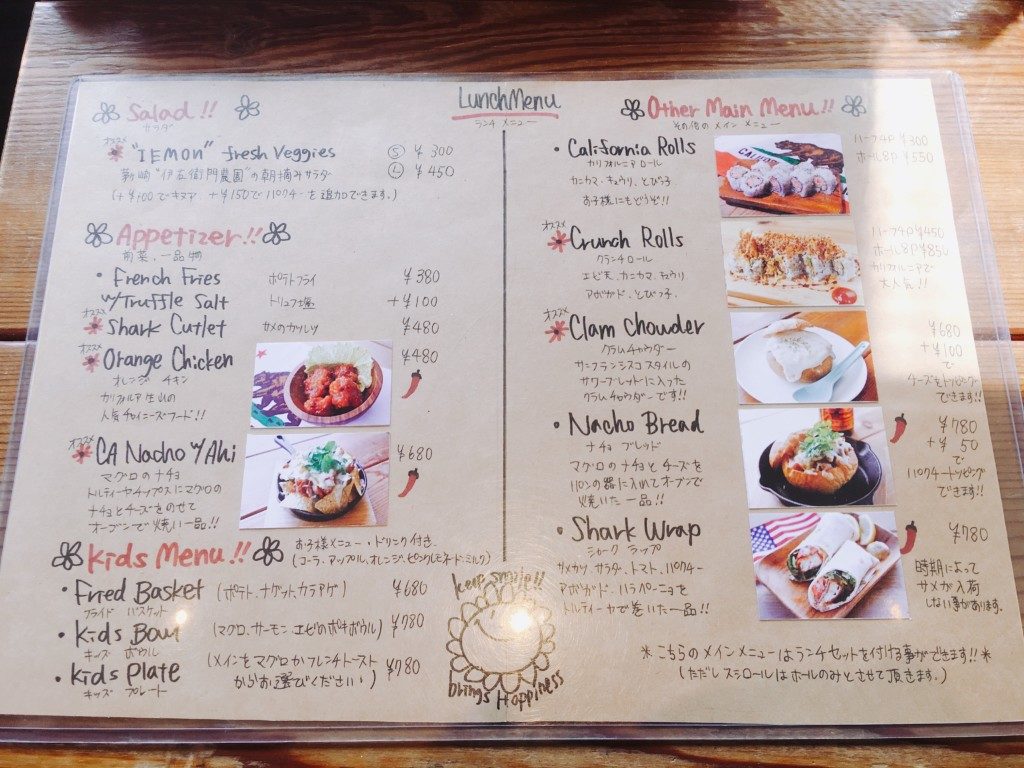 Lunch Menu
ランチ メニュー
Salad!!
サラダ
オススメ
"IEMON" fresh Veggies
Ⓢ ¥300
Ⓛ ¥450
"伊右衛門農園"の朝摘みサラダ
(+¥100でキヌア、+¥150でパクチーを追加できます。)
Appetizer!!
前菜、一品物
• French Fries ポテトフライ ¥380
w/Truffle Salt トリュフ塩 +¥100
オススメ
Shark Cutlet サメのカツレツ ¥480
オススメ
Orange Chicken ¥480
オレンジ チキン
カリフォルニア生まれの
人気チャイニーズフード!!
オススメ
CA Nacho w/Ahi ¥680
マグロのナチョ
トルティーヤチップスにマグロの
ナチョとチーズをのせて
オーブンで焼いた一品!!
Kids Menu!!
お子様メニュー・ドリンク付き
(コーラ、アップル、オレンジ、ピンクレモネード、ミルク)
• Fried Basket (ポテト、ナゲット、カラアゲ) ¥680
フライド バスケット
• Kids Bowl (マグロ、サーモン、エビのポキボウル) ¥780
キッズ ボウル
• Kids Plate (メインをマグロかフレンチトースト
からお選びください) ¥780
キッズ プレート
keep smile!!
brings Happiness
Other Main Menu!!
その他のメインメニュー
• California Rolls
カリフォルニアロール
カニカマ、キュウリ、とびっ子、
お子様にもどうぞ!!
ハーフ4P ¥300
ホール8P ¥550
オススメ
Crunch Rolls
クランチロール
エビ天、カニカマ、キュウリ
アボガド、とびっ子、
ハーフ4P ¥450
ホール8P ¥850
カリフォルニアで
大人気!!
オススメ
Clam Chowder
クラムチャウダー
サンフランシスコスタイルの
サワーブレッドに入った
クラムチャウダーです!!
¥680
+¥100
で
チーズもトッピング
できます!!
• Nacho Bread
ナチョ ブレッド
マグロのナチョとチーズを
パンの器に入れてオーブンで
焼いた一品!!
¥780
+¥50
で
パクチートッピング
できます!!
• Shark Wrap
シャーク ラップ
サメカツ、サラダ、トマト、パクチー
アボガド、ハラペーニョを
トルティーヤで巻いた一品!!
¥780
時期によって
サメが入荷
しない事があります。
※こちらのメインメニューはランチセットを付ける事ができます!!※
(ただしスシロールはホールのみとさせて頂きます。)